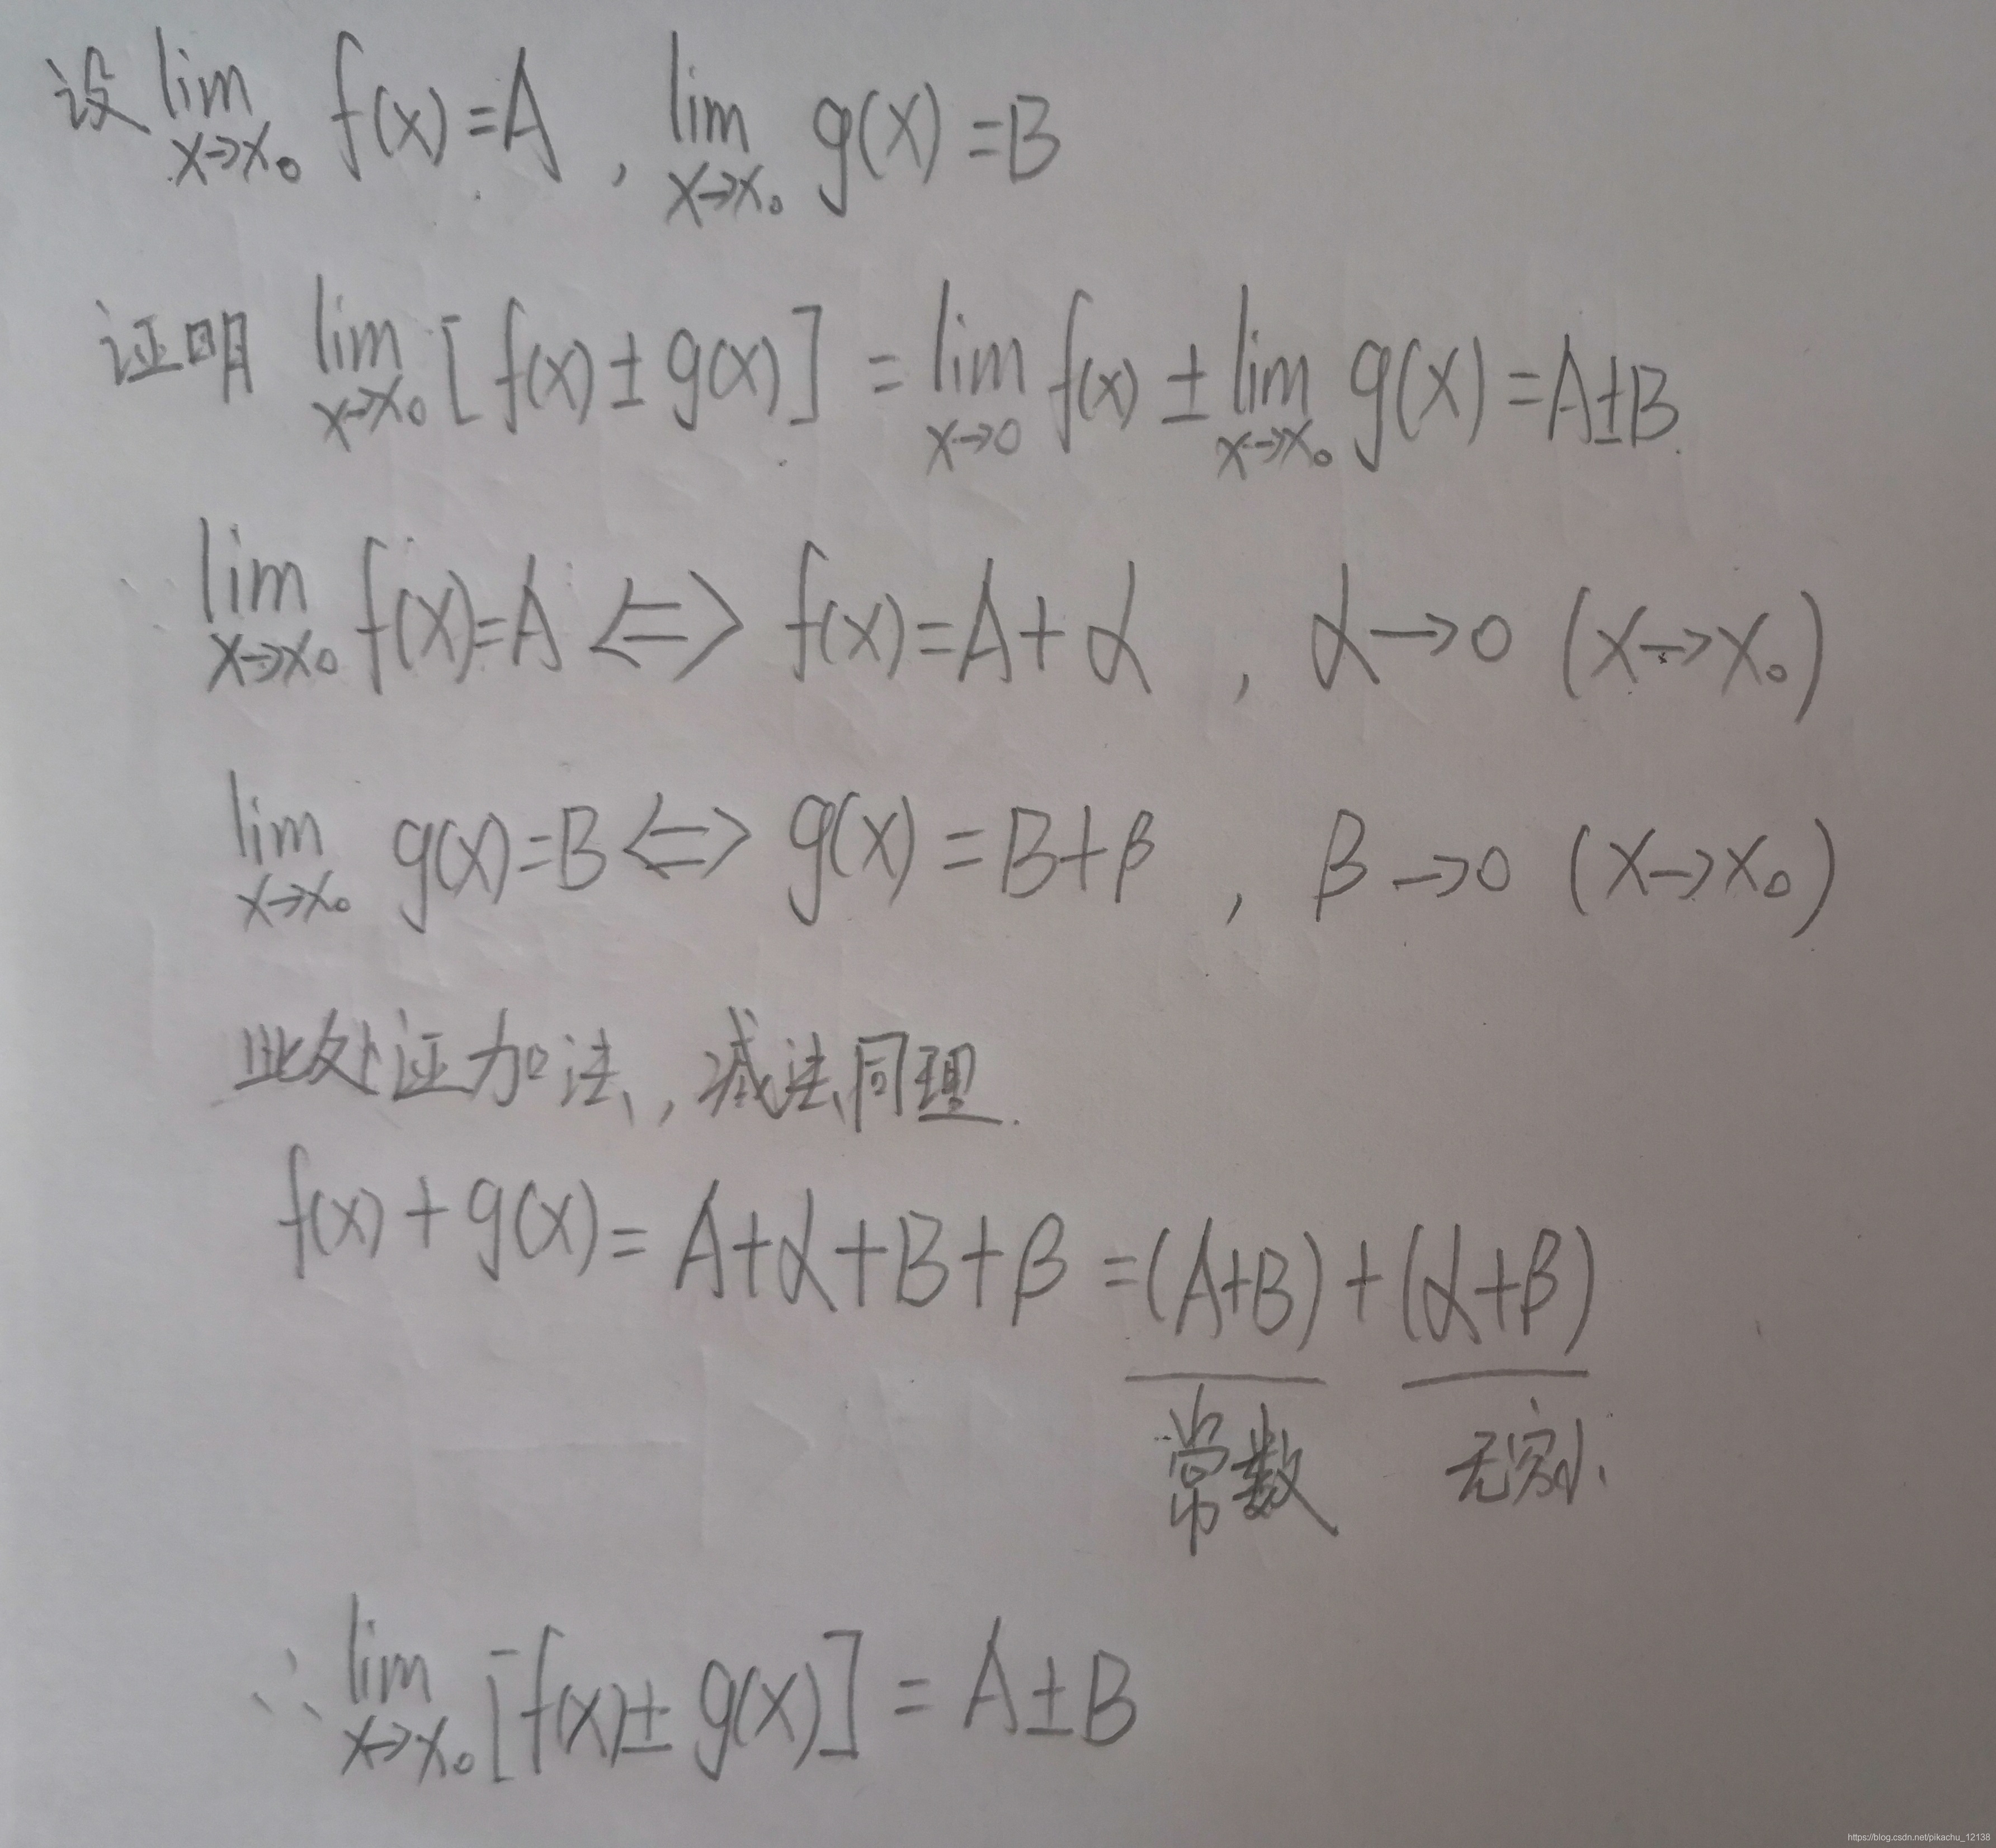 设 lim x→x₀ f(x)=A , lim x→x₀ g(x)=B
证明 lim x→x₀ [f(x)±g(x)] = lim x→0 f(x) ± lim x→x₀ g(x)=A±B.
∵ lim x→x₀ f(x)=A <=> f(x)=A+α , α→0 (x→x₀)
lim x→x₀ g(x)=B <=> g(x)=B+β , β→0 (x→x₀)
此处证加法,减法同理.
f(x)+g(x)=A+α+B+β=(A+B)+(α+β)
常数 无穷小
∴ lim x→x₀ [f(x)±g(x)] = A±B
https://blog.csdn.net/pikachu_12138